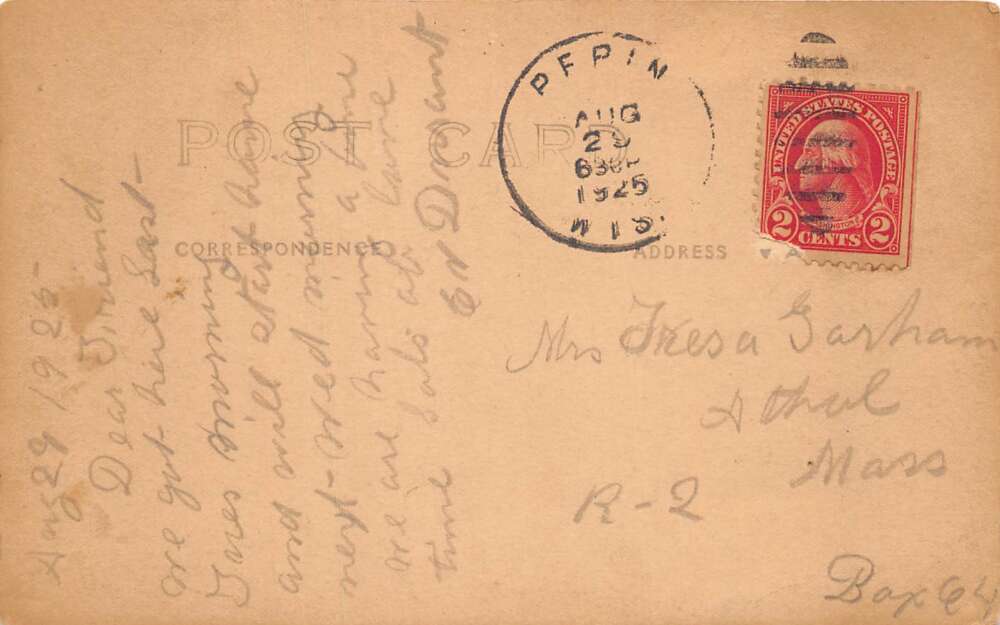 POST CARD
CORRESPONDENCE
ADDRESS
PEPIN
AUG
29
630P
1925
WIS.
UNITED STATES POSTAGE
WASHINGTON
2 CENTS 2
Aug 29 1925
Dear Friend
we got here Last-
Tues morning
and will start home
next- Wed morning
we are having a fine
time Lots of Love
E N Durant
Mrs Tresa Gorham
Athol
Mass
R-2
Box 64